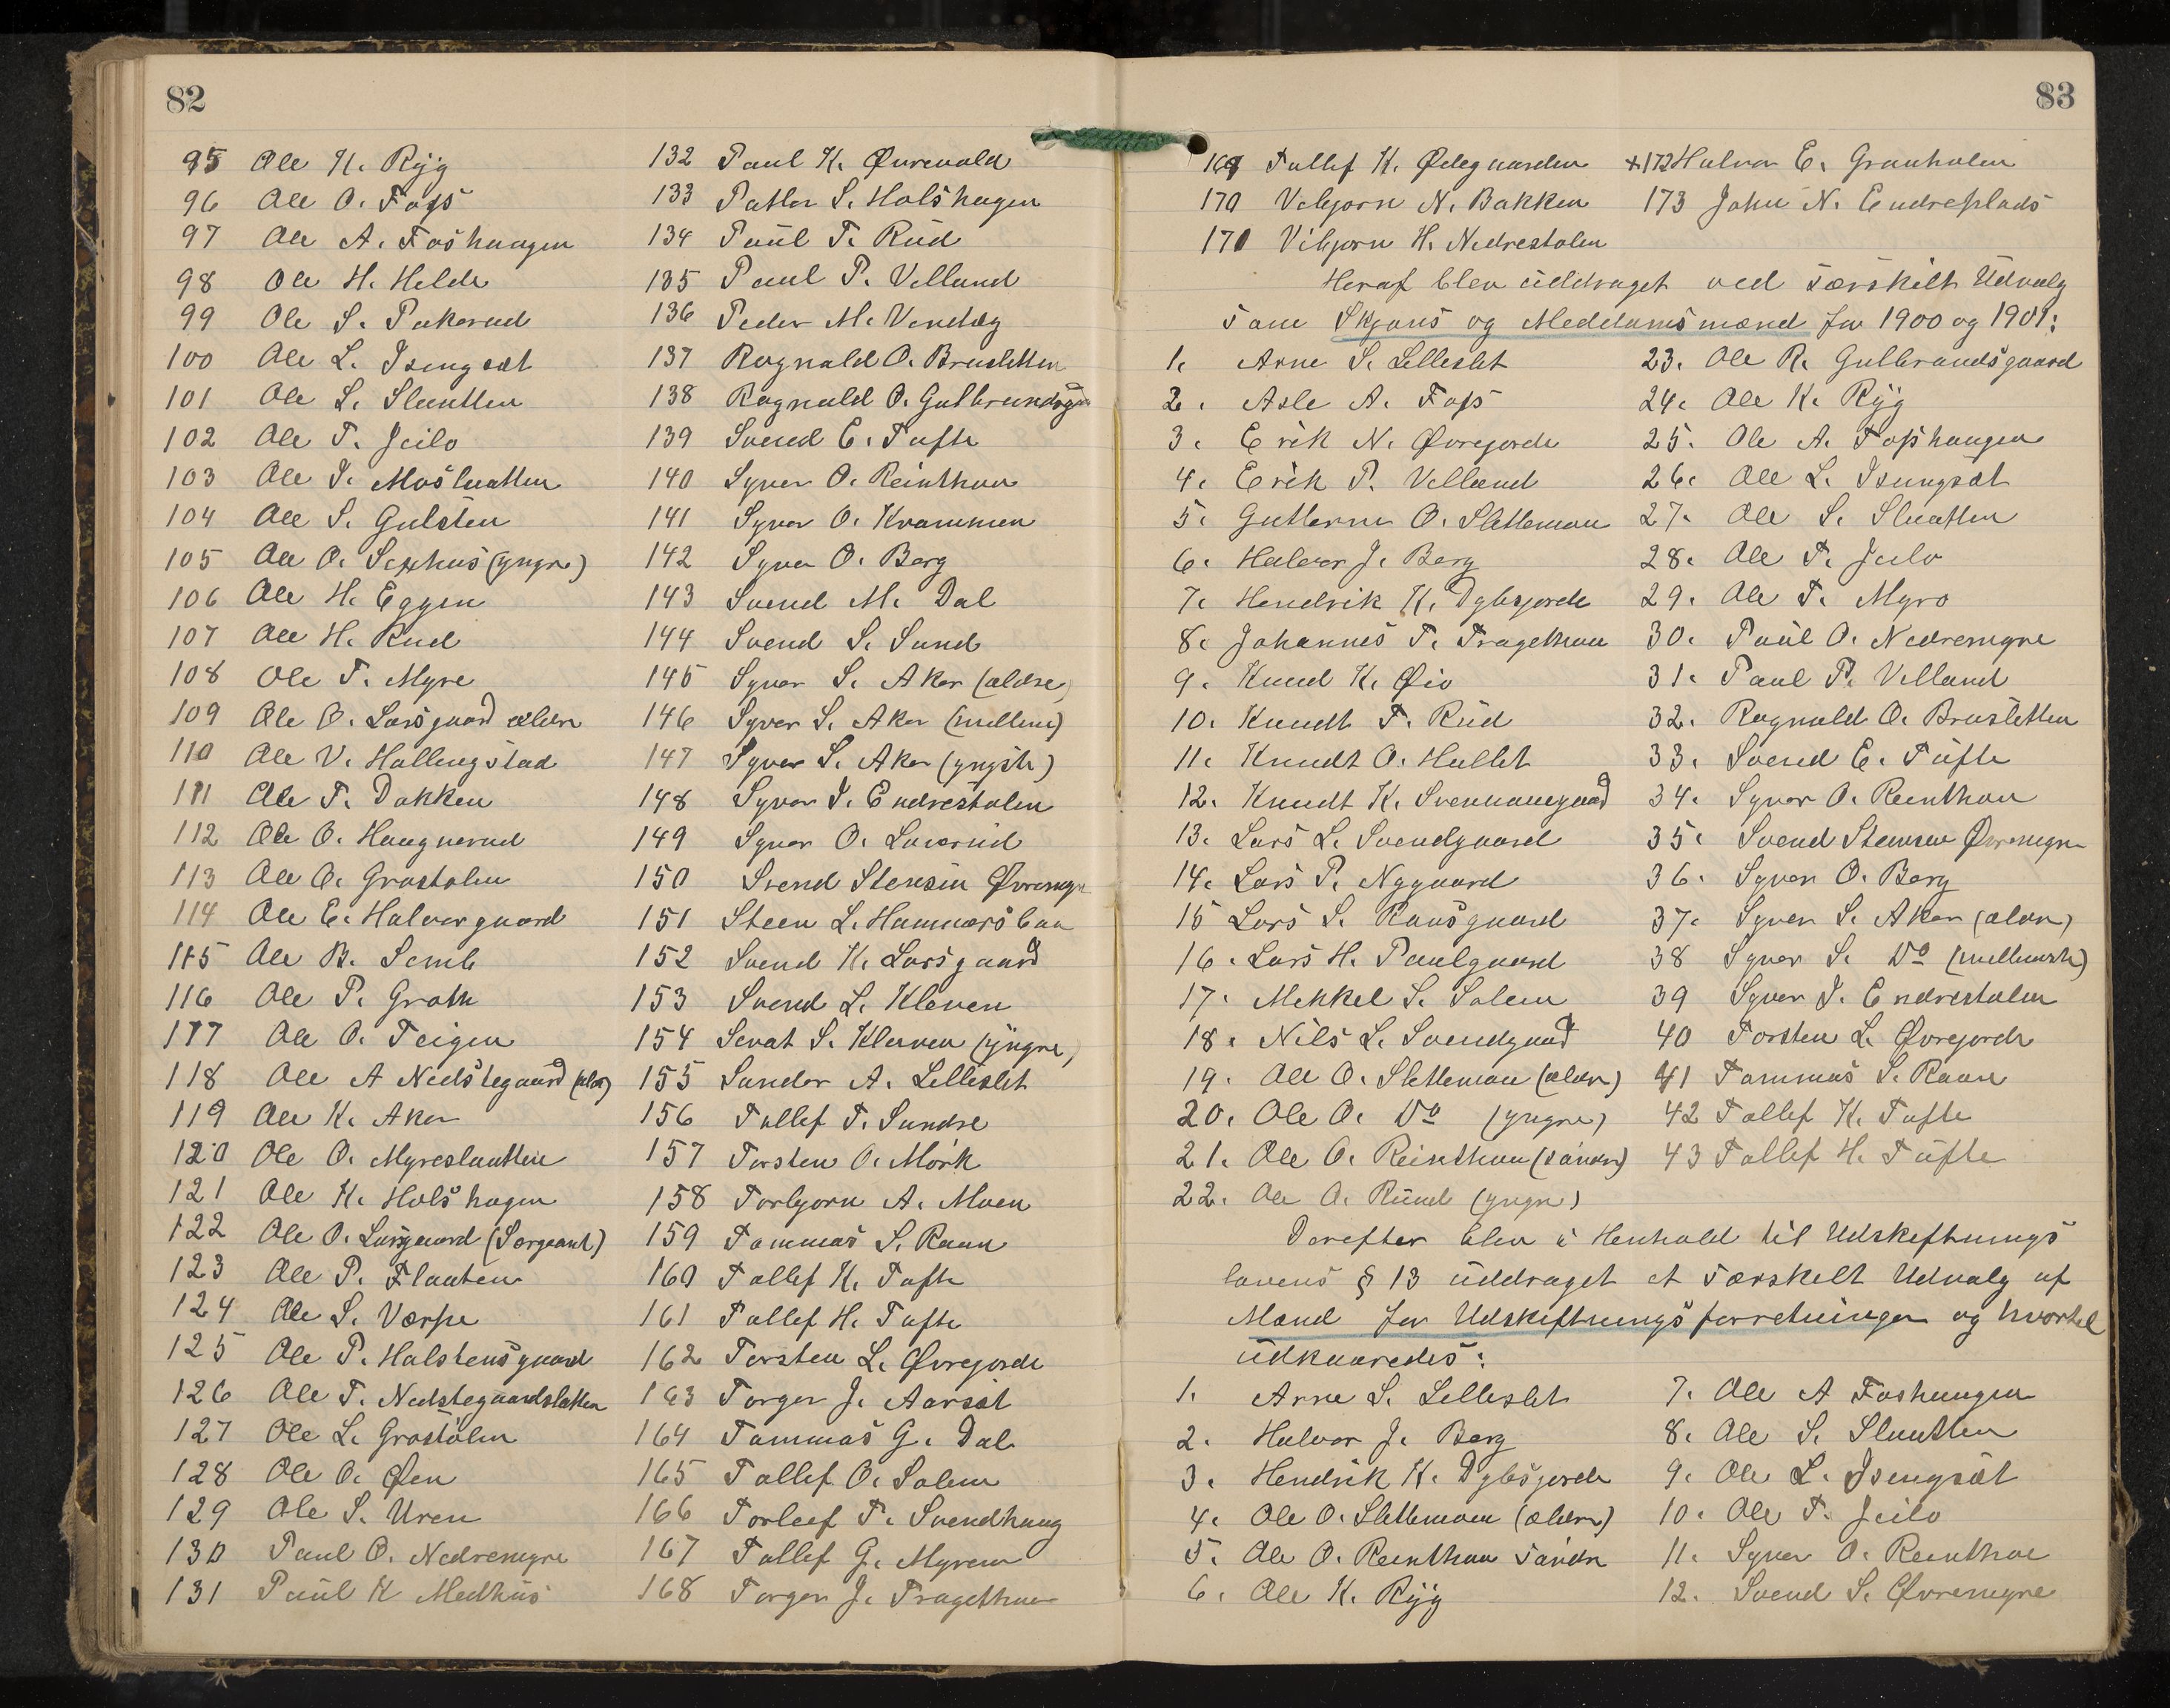 82
95 Ole K. Ryg
96 Ole O. Foss
97 Ole A. Foshaugen
98 Ole H. Helde
99 Ole S. Pukerud
100 Ole L. Isungset
101 Ole S. Slaatten
102 Ole T. Jeilo
103 Ole S. Moslaatten
104 Ole S. Gulsten
105 Ole O. Sexhus (yngre)
106 Ole H. Eggen
107 Ole H. Rud
108 Ole T. Myre
109 Ole O. Larsgaard ældre
110 Ole V. Hallingstad
111 Ole T. Dokken
112 Ole O. Haugnerud
113 Ole O. Grostølen
114 Ole E. Halvorgaard
115 Ole B. Semb
116 Ole P. Groth
117 Ole O. Teigen
118 Ole A Nedstegaard (eldr)
119 Ole K. Aker
120 Ole O. Myreslaatten
121 Ole K. Holshagen
122 Ole O. Larsgaard (Sergeant)
123 Ole P. Flaaten
124 Ole S. Værpe
125 Ole P. Halstensgaard
126 Ole T. Nedstegaardslatten
127 Ole L. Grostølen
128 Ole O. Øen
129 Ole S. Uren
130 Paul O. Nedremyre
131 Paul K Medhus
132 Paul K. Øvrevold
133 Patler S. Holshagen
134 Paul T. Rud
135 Paul P. Villand
136 Peder M. Vindeg
137 Ragnald O. Brusletten
138 Ragnald O. Gulbrandsgd
139 Svend E. Tufte
140 Syver O. Reinthon
141 Syver O. Krammen
142 Syver O. Berg
143 Svend M. Dal
144 Svend S. Sund
145 Syver S. Aker (ældre)
146 Syver S. Aker (mellem)
147 Syver S. Aker (yngste)
148 Syver S. Endrestølen
149 Syver O. Laverud
150 Svend Stensen Øvremyr
151 Steen L. Hammersbøen
152 Svend K. Larsgaard
153 Svend L. Kleven
154 Sevat S. Kleven (yngre)
155 Sander A. Lilleslet
156 Tollef T. Sundre
157 Torsten O. Mørk
158 Torbjørn A. Moen
159 Tommas S. Raaen
160 Tollef K. Tufte
161 Tollef H. Tufte
162 Torsten L. Øvrejorde
163 Torger J. Aarset
164 Tommas G. Dal
165 Tollef O. Solem
166 Torleef T. Svendhaug
167 Tollef G. Myren
168 Torger J. Tragethon
83
169 Tollef K. Ødegaarden
170 Vebjørn N. Bakken
170 Vibjørn H. Nedrestølen
+172 Halvor E. Granholen
173 John N. Endreplads
Heraf blev uddraget ved særskilt Udvalg
som Skjøns og Meddomsmænd for 1900 og 1901:
1. Arne S. Lilleslet
2. Asle A. Foss
3. Erik N. Øvrejorde
4. Erik P. Villand
5. Guttorm O. Slettemoen
6. Halvor J. Berg
7. Hendrik K. Dybsjorde
8. Johannes T. Tragethon
9. Knud K. Øio
10. Knudt T. Rud
11. Knudt O. Hallet
12. Knudt K. Svenkeungaard
13. Lars L. Svendgaard
14. Lars P. Nygaard
15 Lars S. Raaesgaard
16. Lars H. Paulgaard
17. Mekkel S. Solem
18. Nils L. Svendgaard
19. Ole O. Sletteman (ældre)
20. Ole O. Do (yngre)
21. Ole O. Reinthon (søndre)
22. Ole O. Ruud (yngre)
23. Ole R. Gulbrandsgaard
24. Ole K. Ryg
25. Ole A. Fosshaugen
26. Ole L. Isungset
27. Ole S. Slaatten
28. Ole T. Jeilo
29. Ole T. Myro
30. Paul O. Nedremyre
31. Paul P. Villand
32. Ragnald O. Brusletten
33. Svend E. Tufte
34. Syver O. Reinthon
35. Svend Stensen Øvremyre
36. Syver O. Berg
37. Syver S. Aker (ældre)
38 Syver S. Do (mellemste)
39 Syver S. Endrestølen
40 Torsten L. Øvrejorde
41 Tommas S. Raaen
42 Tollef K. Tufte
43 Tollef H. Tufte
Derefter blev i Henhold til Udskiftnings
lovens § 13 uddraget et særskilt Udvalg af
Mænd for Udskiftningsforretninger og hvortil
udkaaredes:
1. Arne S. Lilleslet
2. Halvor J. Berg
3. Hendrik K. Dybsjorde
4. Ole O. Slettemoen (ældre)
5. Ole O. Reinthon søndre
6. Ole K. Ryg
7. Ole A Foshaugen
8. Ole S. Slaatten
9. Ole L. Isungset
10. Ole T. Jeilo
11. Syver O. Reinthon
12. Svend S. Øvremyre